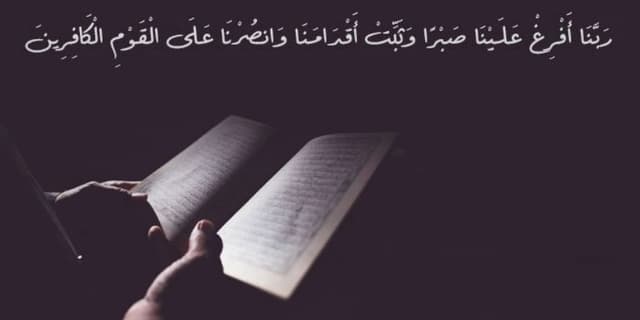 رَبَّنَا أَفْرِغْ عَلَيْنَا صَبْرًا وَثَبِّتْ أَقْدَامَنَا وَانصُرْنَا عَلَى الْقَوْمِ الْكَافِرِينَ